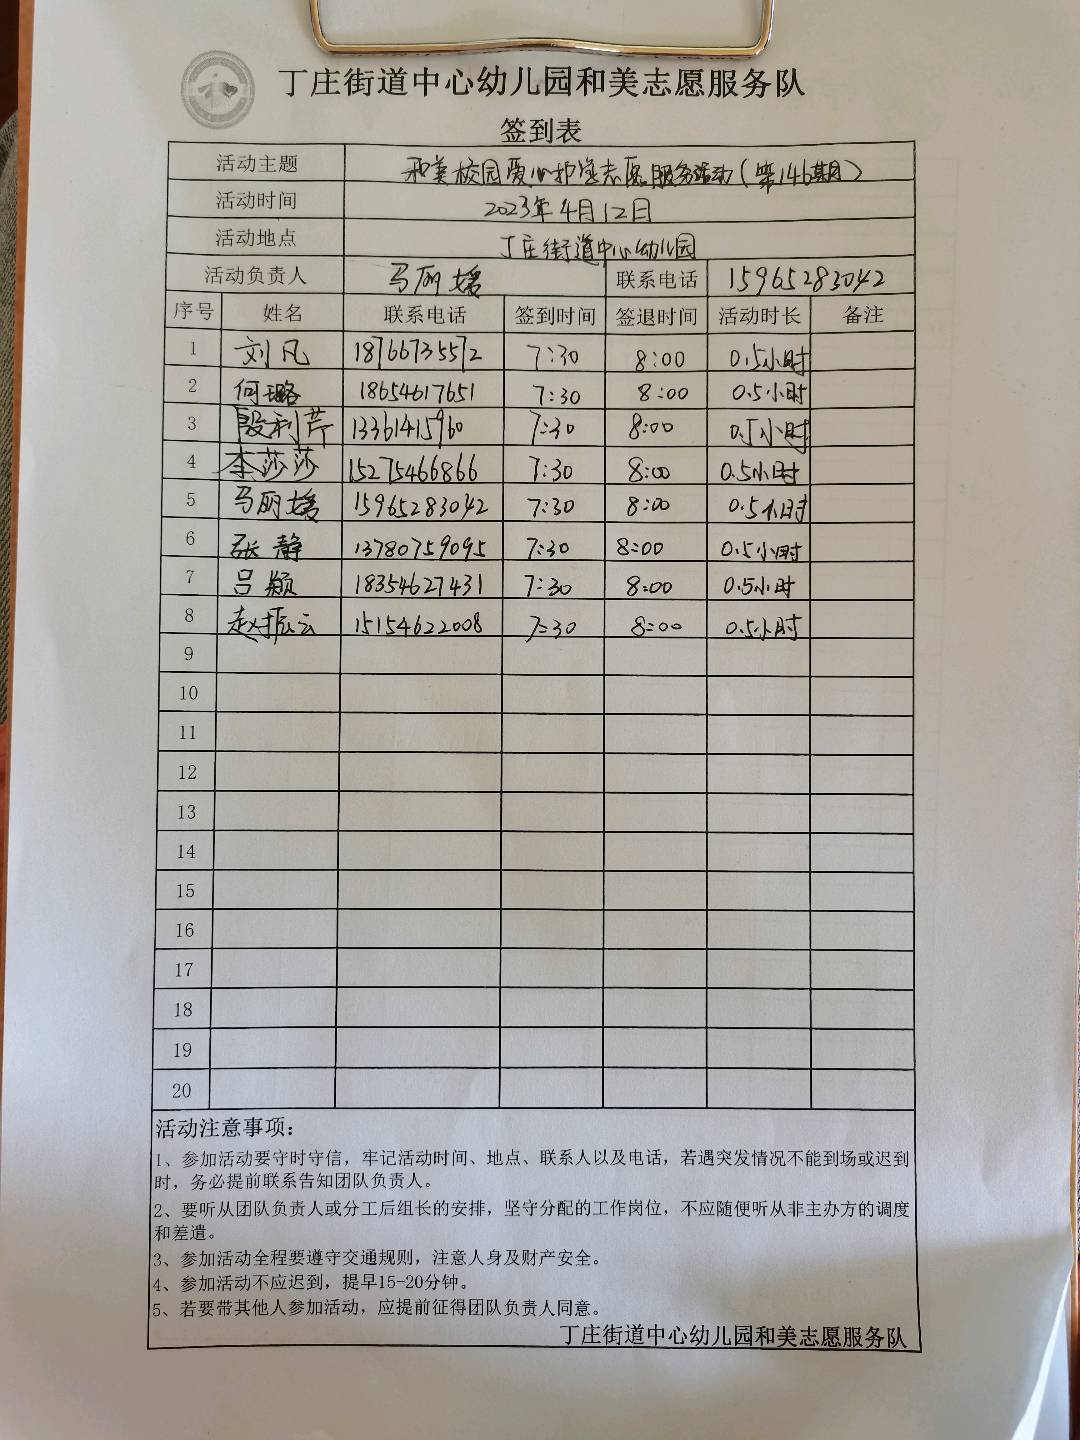 丁庄街道中心幼儿园和美志愿服务队
签到表
活动主题 和美校园爱心护学志愿服务活动(第146期)
活动时间 2023年4月12日
活动地点 丁庄街道中心幼儿园
活动负责人 马丽媛 联系电话 15965283042
序号 姓名 联系电话 签到时间 签退时间 活动时长 备注
1 刘凡 18766735572 7:30 8:00 0.5小时
2 何璐 18654617651 7:30 8:00 0.5小时
3 殷利芹 13361415960 7:30 8:00 0.5小时
4 李莎莎 15275466866 7:30 8:00 0.5小时
5 马丽媛 15965283042 7:30 8:00 0.5小时
6 张静 13780759095 7:30 8:00 0.5小时
7 吕颖 18354627431 7:30 8:00 0.5小时
8 赵振云 15154622008 7:30 8:00 0.5小时
9
10
11
12
13
14
15
16
17
18
19
20
活动注意事项：
1、参加活动要守时守信，牢记活动时间、地点、联系人以及电话，若遇突发情况不能到场或迟到
时，务必提前联系告知团队负责人。
2、要听从团队负责人或分工后组长的安排，坚守分配的工作岗位，不应随便听从非主办方的调度
和差遣。
3、参加活动全程要遵守交通规则，注意人身及财产安全。
4、参加活动不应迟到，提早15-20分钟。
5、若要带其他人参加活动，应提前征得团队负责人同意。
丁庄街道中心幼儿园和美志愿服务队